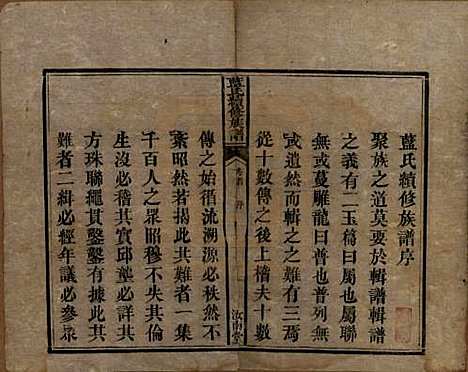 藍氏續修族譜序
聚族之道莫要於輯譜輯譜
之義有二玉篇曰屬也屬聯
無或蔓雕龍曰普也普列無
或遺然而輯之之難有三焉
從十數傳之後上稽夫十數
藍氏續修族譜
卷首 序
汝南堂
傳之始循流溯源必秩然不
紊昭然若揭此其難者一集
千百人之眾昭穆不失其倫
生沒必稽其實邱壟必存其
方珠聯繩貫鑿鑿有據此其
難者二緝必經年議必參眾